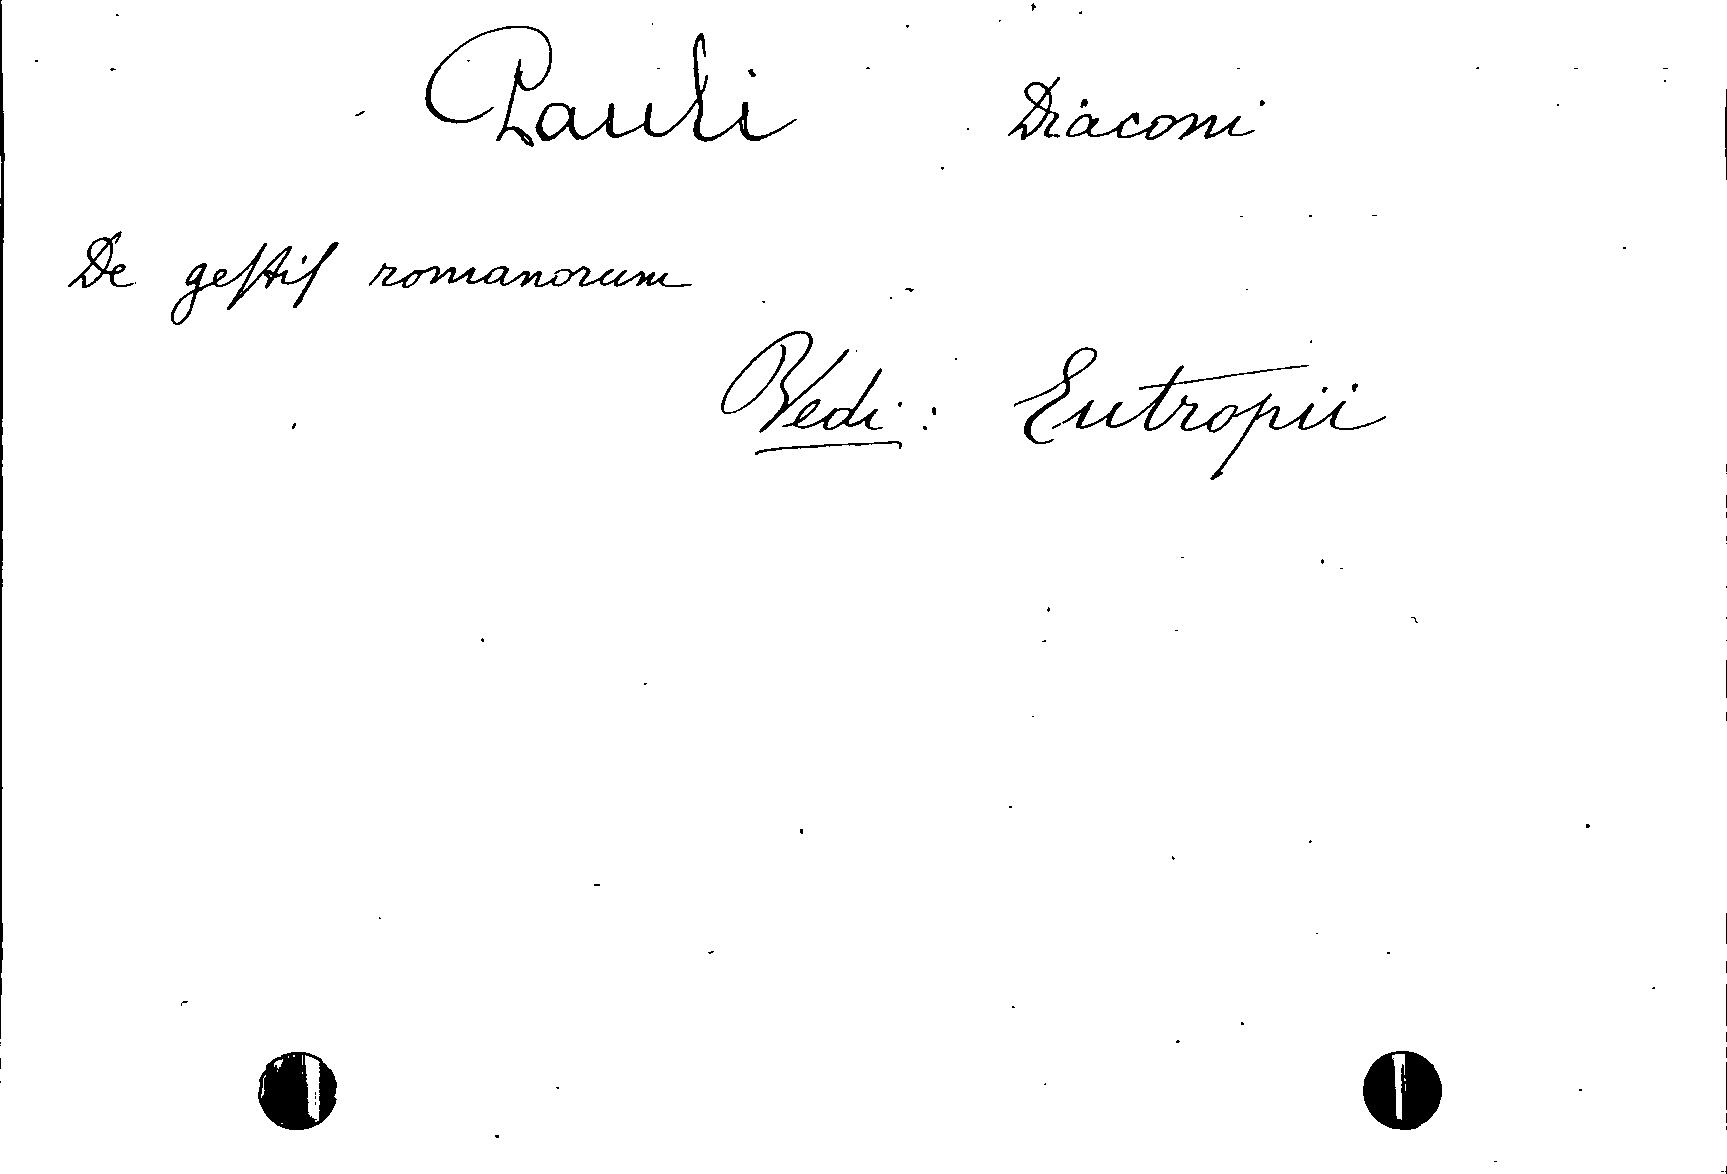 Pauli Diaconi
De geſtiſ romanorum
Vedi: Eutropii